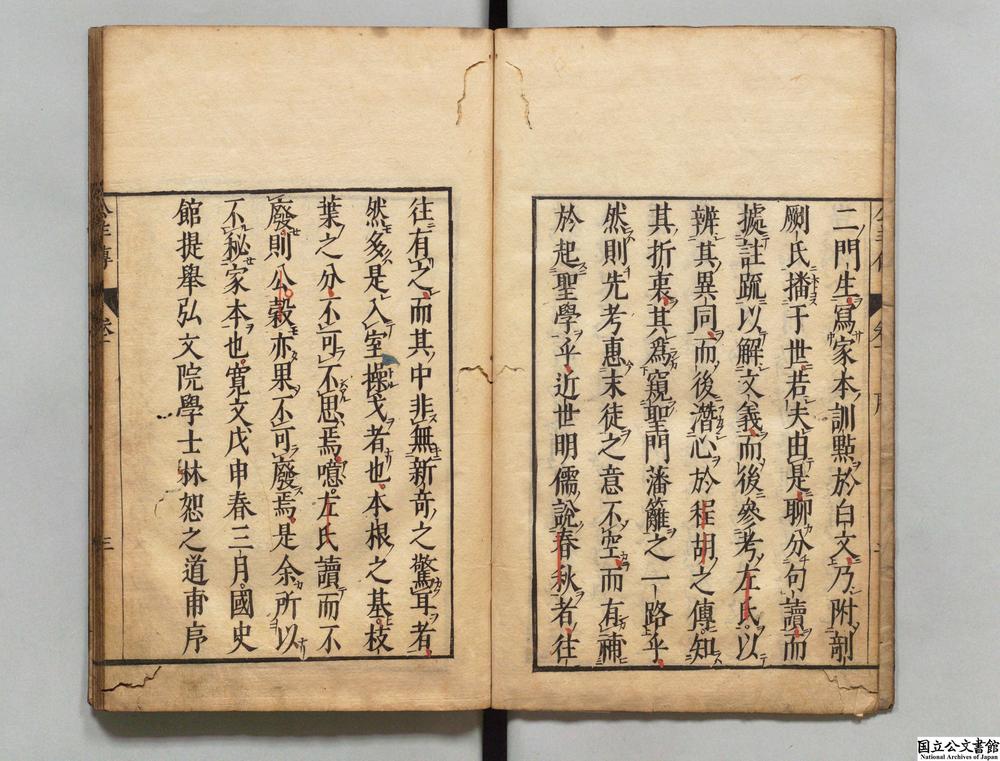 二門生寫家本訓點於白文乃附剞
劂氏播于世若夫由是聊分句讀而
據註疏以解文義而後參考左氏以
辨其異同而後潛心於程胡之傳知
其折衷其爲窺聖門藩籬之一路乎
然則先考惠末徒之意不空而有補
於起聖學乎近世明儒說春秋者往
往有之而其中非無新奇之驚耳者
然多是入室操戈者也本根之基枝
葉之分不可不思焉噫左氏讀而不
廢則公穀亦果不可廢焉是余所以
不秘家本也寬文戊申春三月國史
館提舉弘文院學士林恕之道甫序
国立公文書館
National Archives of Japan